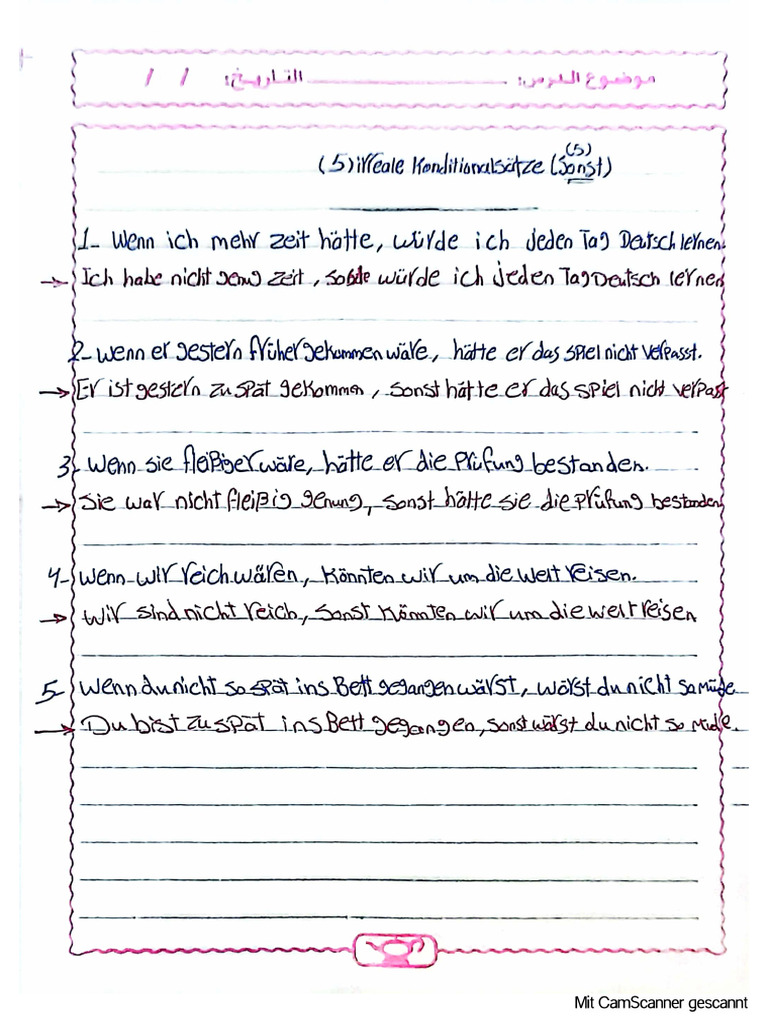 موضوع الدرس: ____________ التاريخ: / /
(5)
(5) irreale Konditionalsätze (Sonst)
1- Wenn ich mehr zeit hätte, würde ich jeden Tag Deutsch lernen.
→ Ich habe nicht genug zeit, würde ich jeden Tag Deutsch lernen
2- wenn er gestern früher gekommen wäre, hätte er das spiel nicht verpasst.
→ Er ist gestern zu spät gekommen, sonst hätte er das spiel nicht verpasst
3- wenn sie fleißiger wäre, hätte er die Prüfung bestanden.
→ Sie war nicht fleißig genung, sonst hätte sie die Prüfung bestanden
4- wenn wir reich wären, könnten wir um die welt reisen.
→ wir sind nicht reich, sonst könnten wir um die welt reisen
5- wenn du nicht so spät ins Bett gegangen wärst, wärst du nicht so müde
→ Du bist zu spät ins Bett gegangen, sonst wärst du nicht so müde.
Mit CamScanner gescannt